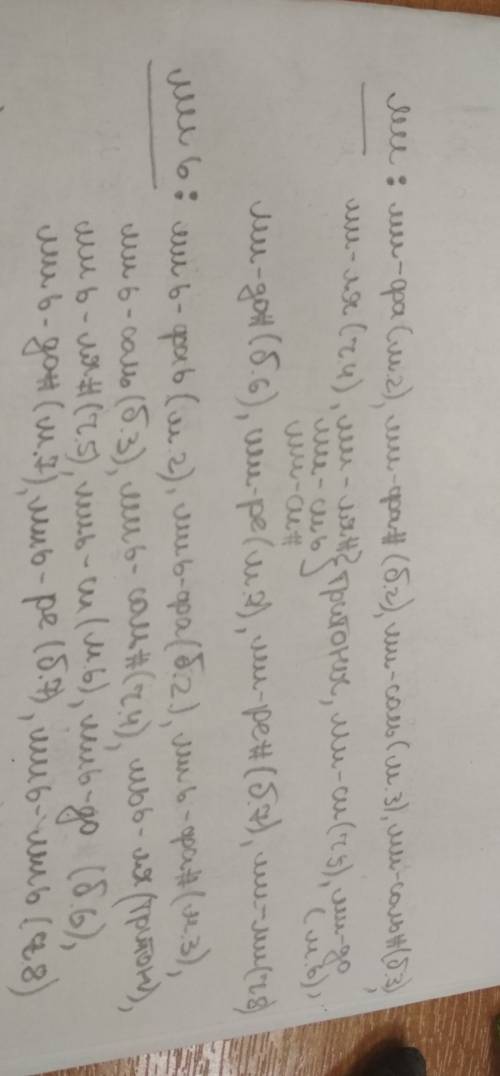 ми: ми-фа (м.2), ми-фа# (б.2), ми-соль (м.3), ми-соль# (б.3),
ми-ля (ч.4), ми-ля#}тритоны, ми-си (ч.5), ми-до
ми-сиb
ми-си#
(м.6),
ми-до# (б.6), ми-ре (м.7), ми-ре# (б.7), ми-ми (ч.8)
миb: миb-фаb (м.2), миb-фа (б.2), миb-фа# (м.3),
миb-соль (б.3), миb-соль# (ч.4), миb-ля (тритон),
миb-ля# (ч.5), миb-си (м.6), миb-до (б.6),
миb-до# (м.7), миb-ре (б.7), миb-миb (ч.8)